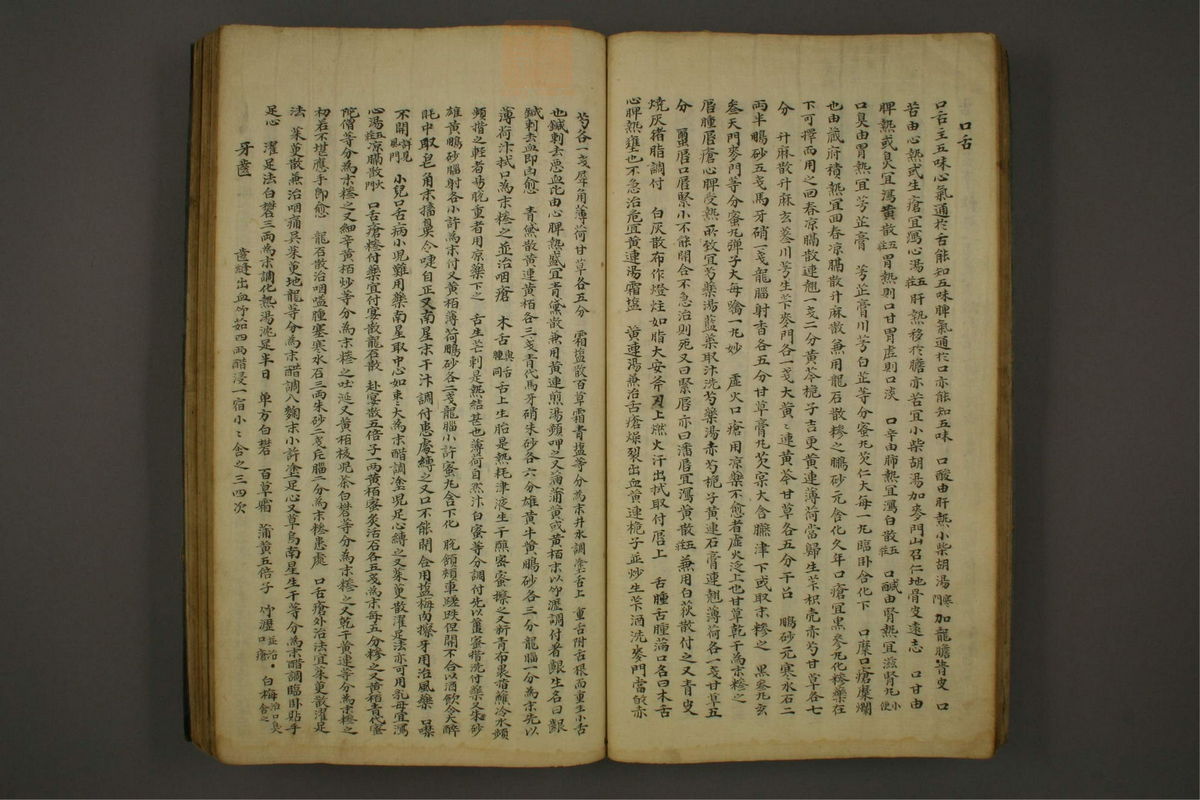 口舌
口舌主五味心氣通於舌能知五味脾氣通於口亦能知五味 口酸由肝熱小柴胡湯寒門加龍膽青皮 口
苦由心熱或生瘡宜瀉心湯五臟肝熱移於膽亦苦宜小柴胡湯加麥門山召仁地骨皮遠志 口甘由
脾熱或臭宜瀉黃散五臟胃熱則口甘胃虛則口淡 口辛由肺熱宜瀉白散五臟 口鹹由腎熱宜滋腎丸小便
口臭由胃熱宜芎芷膏 芎芷膏川芎白芷等分蜜丸芡仁大每一丸臨卧含化下 口糜口瘡糜爛
也由藏府積熱宜回春凉膈散升麻散兼用龍石散糝之鵬砂元含化久年口瘡宜黑參丸化糝藥在
下可擇而用之回春凉膈散連翹一戔二分黃芩梔子吉更黃連薄荷當歸生芐枳壳赤芍甘草各七
分 升麻散升麻玄蔘川芎生芐麥門各一戔大黃〻連黃芩甘草各五分干吕 鵬砂元寒水石二
兩半鵬砂五戔馬牙硝一戔龍腦射香各五分甘草膏丸芡宲大含臙津下或取末糝之 黑參丸玄
參天門麥門等分蜜丸彈子大每噙一丸妙 虛火口瘡用凉藥不愈者虛火泛上也甘草乾干爲末糝之
唇腫唇瘡心脾受熱所致宜芍藥湯藍葉取汁洗芍藥湯赤芍梔子黃連石膏連翹薄荷各一戔甘草五
分 蠒唇口唇緊小不能開合不急治則死又曰緊唇亦曰瀋唇宜瀉黃散五臟兼用白荻散付之又青皮
燒灰猪脂調付 白灰散布作燈炷如脂大安斧刃上燃火汗出拭取付唇上 舌腫舌腫滿口名曰木舌
心脾熱壅也不急治危宜黃連湯霜塩 黃連湯兼治舌瘡燥裂出血黃連梔子並炒生芐酒洗麥門當敀赤
芍各一戔犀角薄荷甘草各五分 霜塩散百草霜青塩等分爲末井水調塗舌上 重舌附舌根而重生小舌
也鍼刺去惡血 由心脾熱盛宜青黛散兼用黃連煎湯頻呷之又論蒲黃或黃栢末以竹瀝調付着齦生名曰齦
鍼刺去血即愈 青黛散黃連黃栢各三戔青代馬牙硝朱砂各六分雄黃牛黃鵬砂各三分龍腦一分爲末先以
薄荷汁拭口爲末糝之並治咽瘡 木舌與舌腫同 舌上生胎是熱耗津液生干臙蜜蜜擦之又新青布裹指蘸冷水頻
頻揩之輕者苟脫重者用凉藥下之 舌生芒刺是熱結甚也薄荷自然汁白蜜等分調付先以薑蜜揩洗付藥又朱砂
雄黃鵬砂腦射各小許爲末付又黃栢薄荷鵬砂各二戔龍腦小許蜜丸含下化 脫頷頰車蹉跌但開不合以酒飮令大醉
旽中取皂角末搐鼻令㖒自正又南星末干汁調付患處縳之又口不能開合用塩梅肉擦牙用治風藥 呈噤
不開詳見風門 小兒口舌病小兒難用藥南星取中心如東〻大爲末醋調塗兒足心縳之又茱萸散濯足法亦可用乳母宜瀉
心湯五臟凉膈散火 口舌瘡糝付藥宜付宴散龍石散 赴宴散五倍子一兩黃栢蜜炙活石各五戔爲末每五分糝之黃栢青代蜜
陀僧等分爲末糝之又細辛黃栢炒等分爲末糝之吐涎又黃栢枝兒茶白礬等分爲末糝之又乾干黃連等分爲末糝之
初若不堪應手即愈 龍石散治咽嗌腫塞寒水石三兩朱砂二戔疕腦二分爲末糝患處 口舌瘡外治法宜茱萸散濯足
法 茱萸散兼治咽痛吳茱萸地龍等分爲末醋調入麵末小許塗足心又草烏南星生干等分爲末醋調臨卧貼手
足心 濯足法白礬三兩爲末調化熱湯洗足半日 单方白礬 百草霜 蒲黃五倍子 竹瀝並治口瘡 白梅治口臭含之
牙齒 齒縫出血竹茹四兩醋浸一宿小〻含之三四次